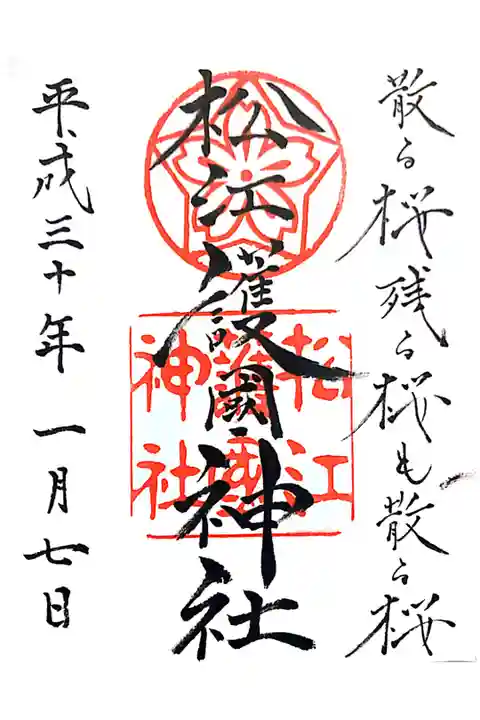 散る桜残る桜も散る桜
松江護國神社
松江
護國
神社
平成三十年 一月七日